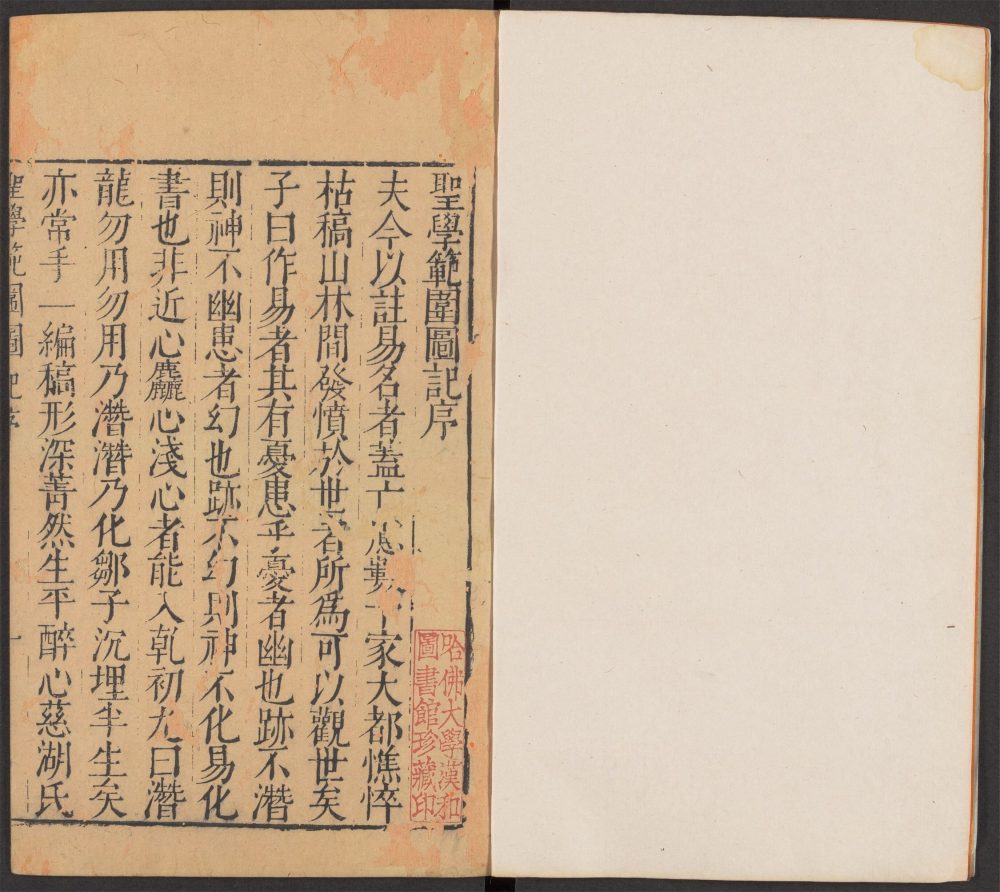 聖學範圍圖記序
夫今以註易名者蓋亡慮數十家大都憔悴
枯稿山林間發憤於世者所爲可以觀世矣
子曰作易者其有憂患乎憂者幽也跡不潛
則神不幽患者幻也跡不幻則神不化易化
書也非近心麤心淺心者能入乾初九曰潛
龍勿用勿用乃潛潛乃化鄒子沉埋半生矣
亦常手一編稿形深菁然生平醉心慈湖氏
聖學範圍圖記序
一
哈佛大學漢和
圖書館珍藏印